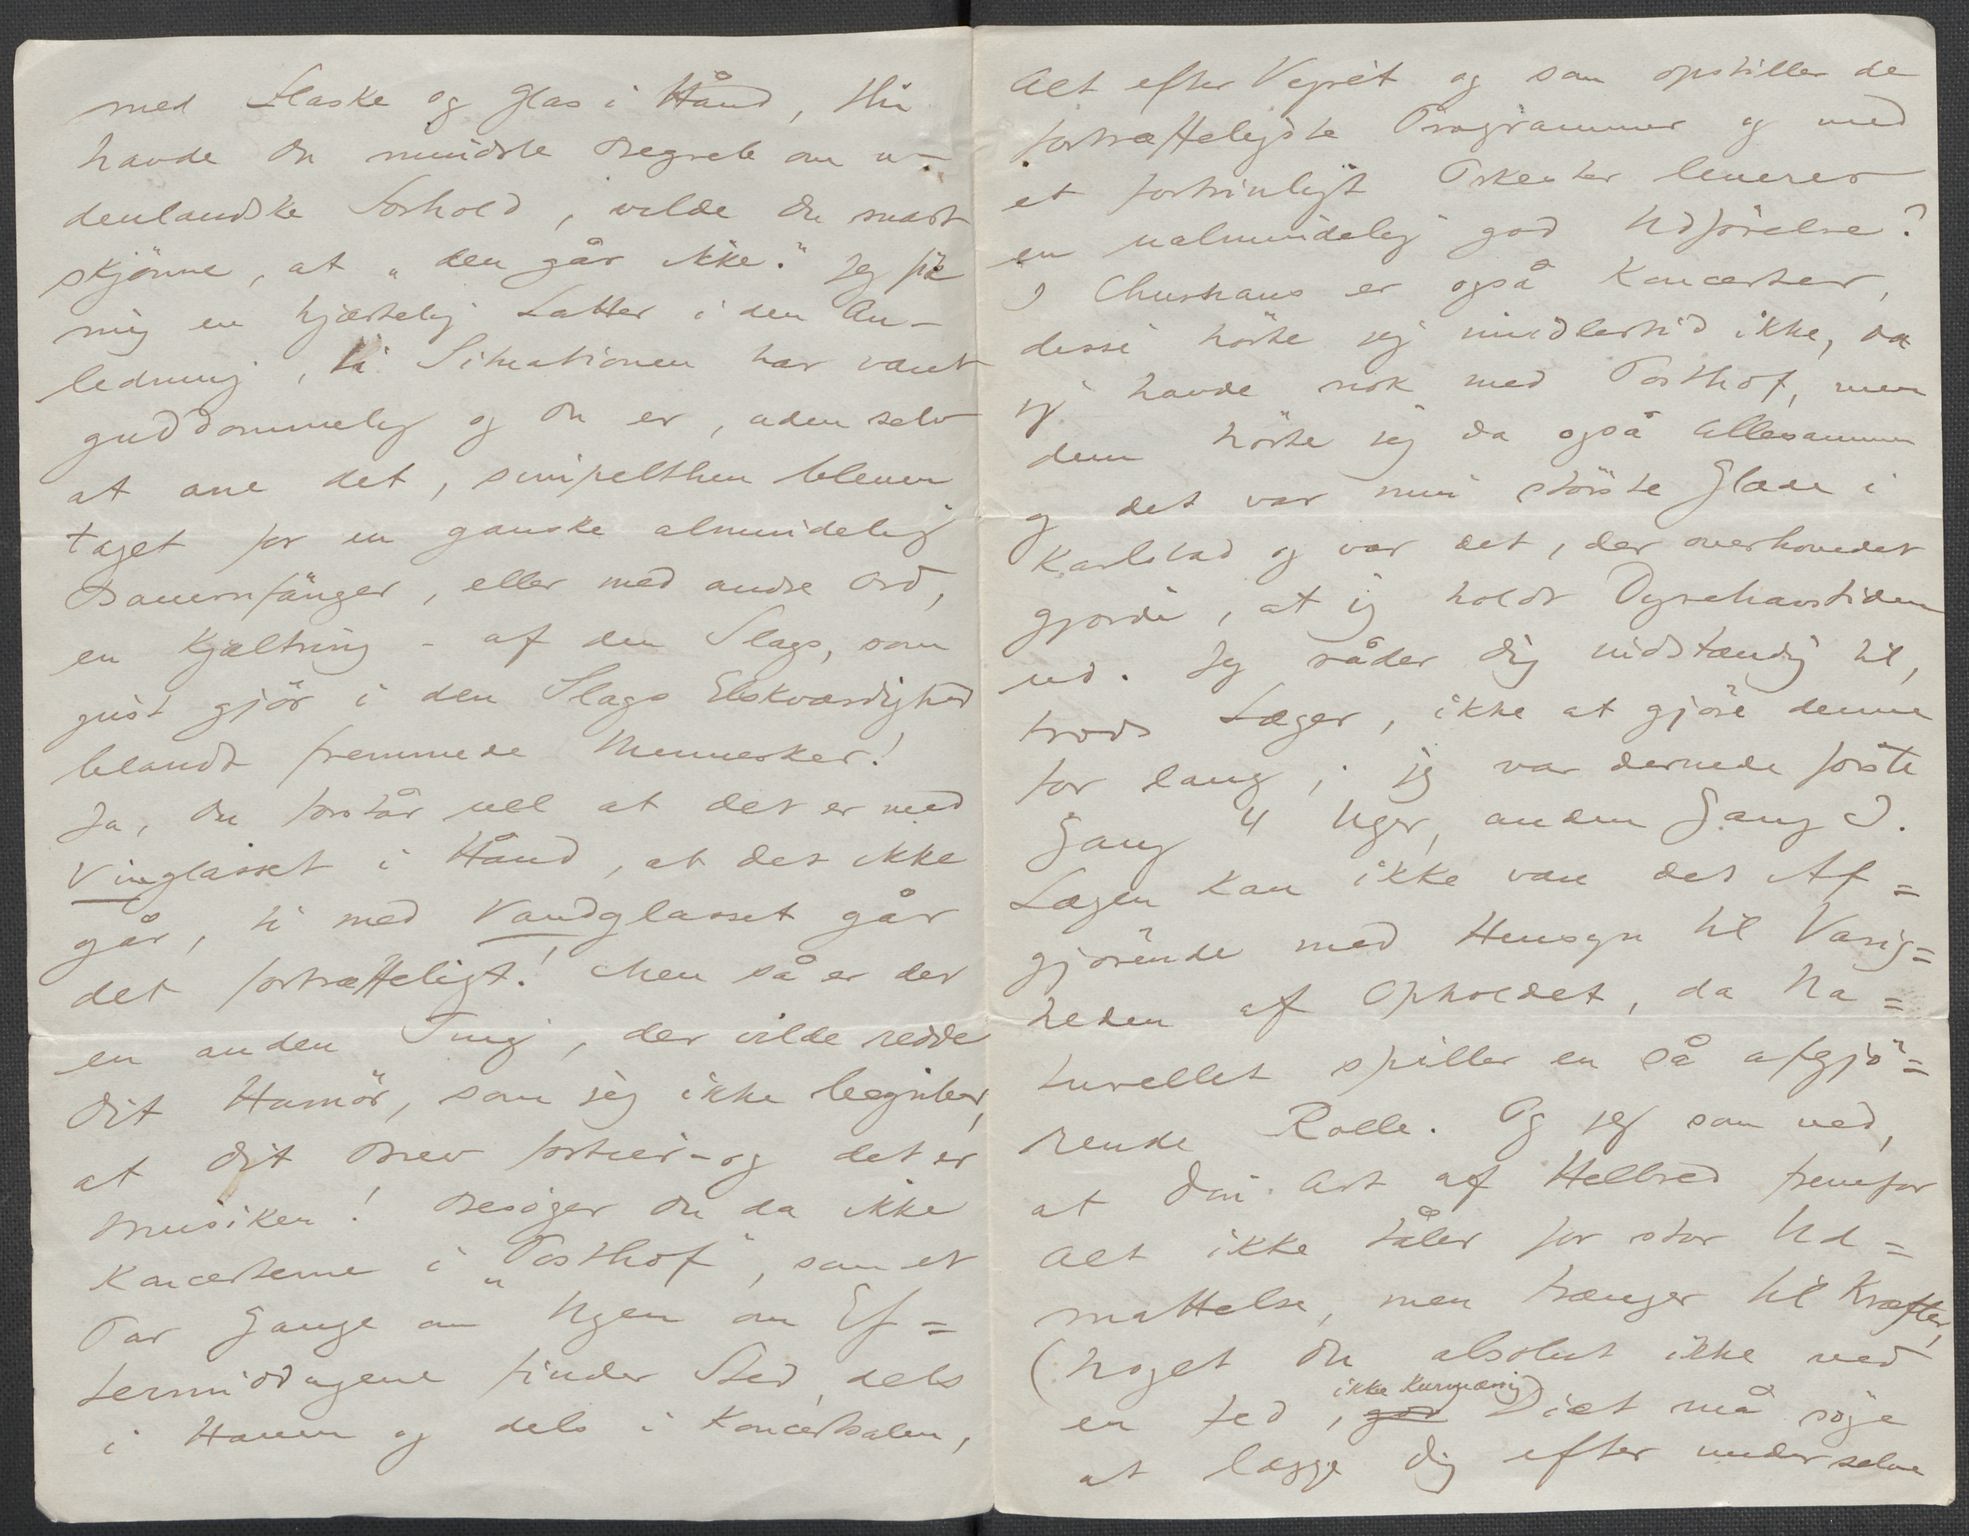 med Flaske og Glas i Hånd, thi
havde du mindste Begreb om u-
denlandske Forhold, vilde du snart
skjønne, at "den går ikke." Jeg fik
mig en hjærtelig Latter i den An-
ledning, ti Situationen har været
guddommelig og du er, uden selv
at ane det, simpelthen bleven
taget for en ganske almindelig
Bauernfänger, eller med andre Ord,
en Kjæltring - af den Slags, som
just gjör i den Slags Elskværdighed
blandt fremmede Mennesker!
Ja, du forstår vel at det er med
Vinglasset i Hånd, at det ikke
går, ti med Vandglasset går
det fortræffeligt! Men så er der
en anden Ting, der vilde redde
dit Humör, som jeg ikke begriber,
at dit Brev fortier - og det er
Musiken! Besöger du da ikke
Koncerterne i "Posthof", som et
Par Gange om Ugen om Ef=
termiddagene finder Sted, dels
i Haven og dels i Koncertsalen,
Alt efter Vejret og som opstiller de
fortræffeligste Programmer og med
et fortrinligt Orkester leverer
en ualmindelig god Udförelse?
I Churhaus er også Koncerter,
disse hörte jeg imidlertid ikke, da
jeg havde nok med Posthof, men
dem hörte jeg da også allesammen
og det var min störste Glæde i
Karlsbad og var det, der overhovedet
gjorde, at jeg holdt Dyrehavstiden
ud. Jeg råder dig indstændig til,
trods Læger, ikke at gjöre denne
for lang; jeg var dernede förste
Gang 4 Uger, anden Gang 3.
Lægen kan ikke være det Af=
gjörende med Hensyn til Varig=
heden af Opholdet, da Na=
turellet spiller en så afgjö=
rende Rolle. Og jeg som ved,
at din Art af Helbred fremfor
Alt ikke tåler for stor Ud=
mattelse, men trænger til Kræfter,
(noget du absolut ikke ved
en fed, ikke kurmæssig) Diæt må söge
at lægge dig efter under selve